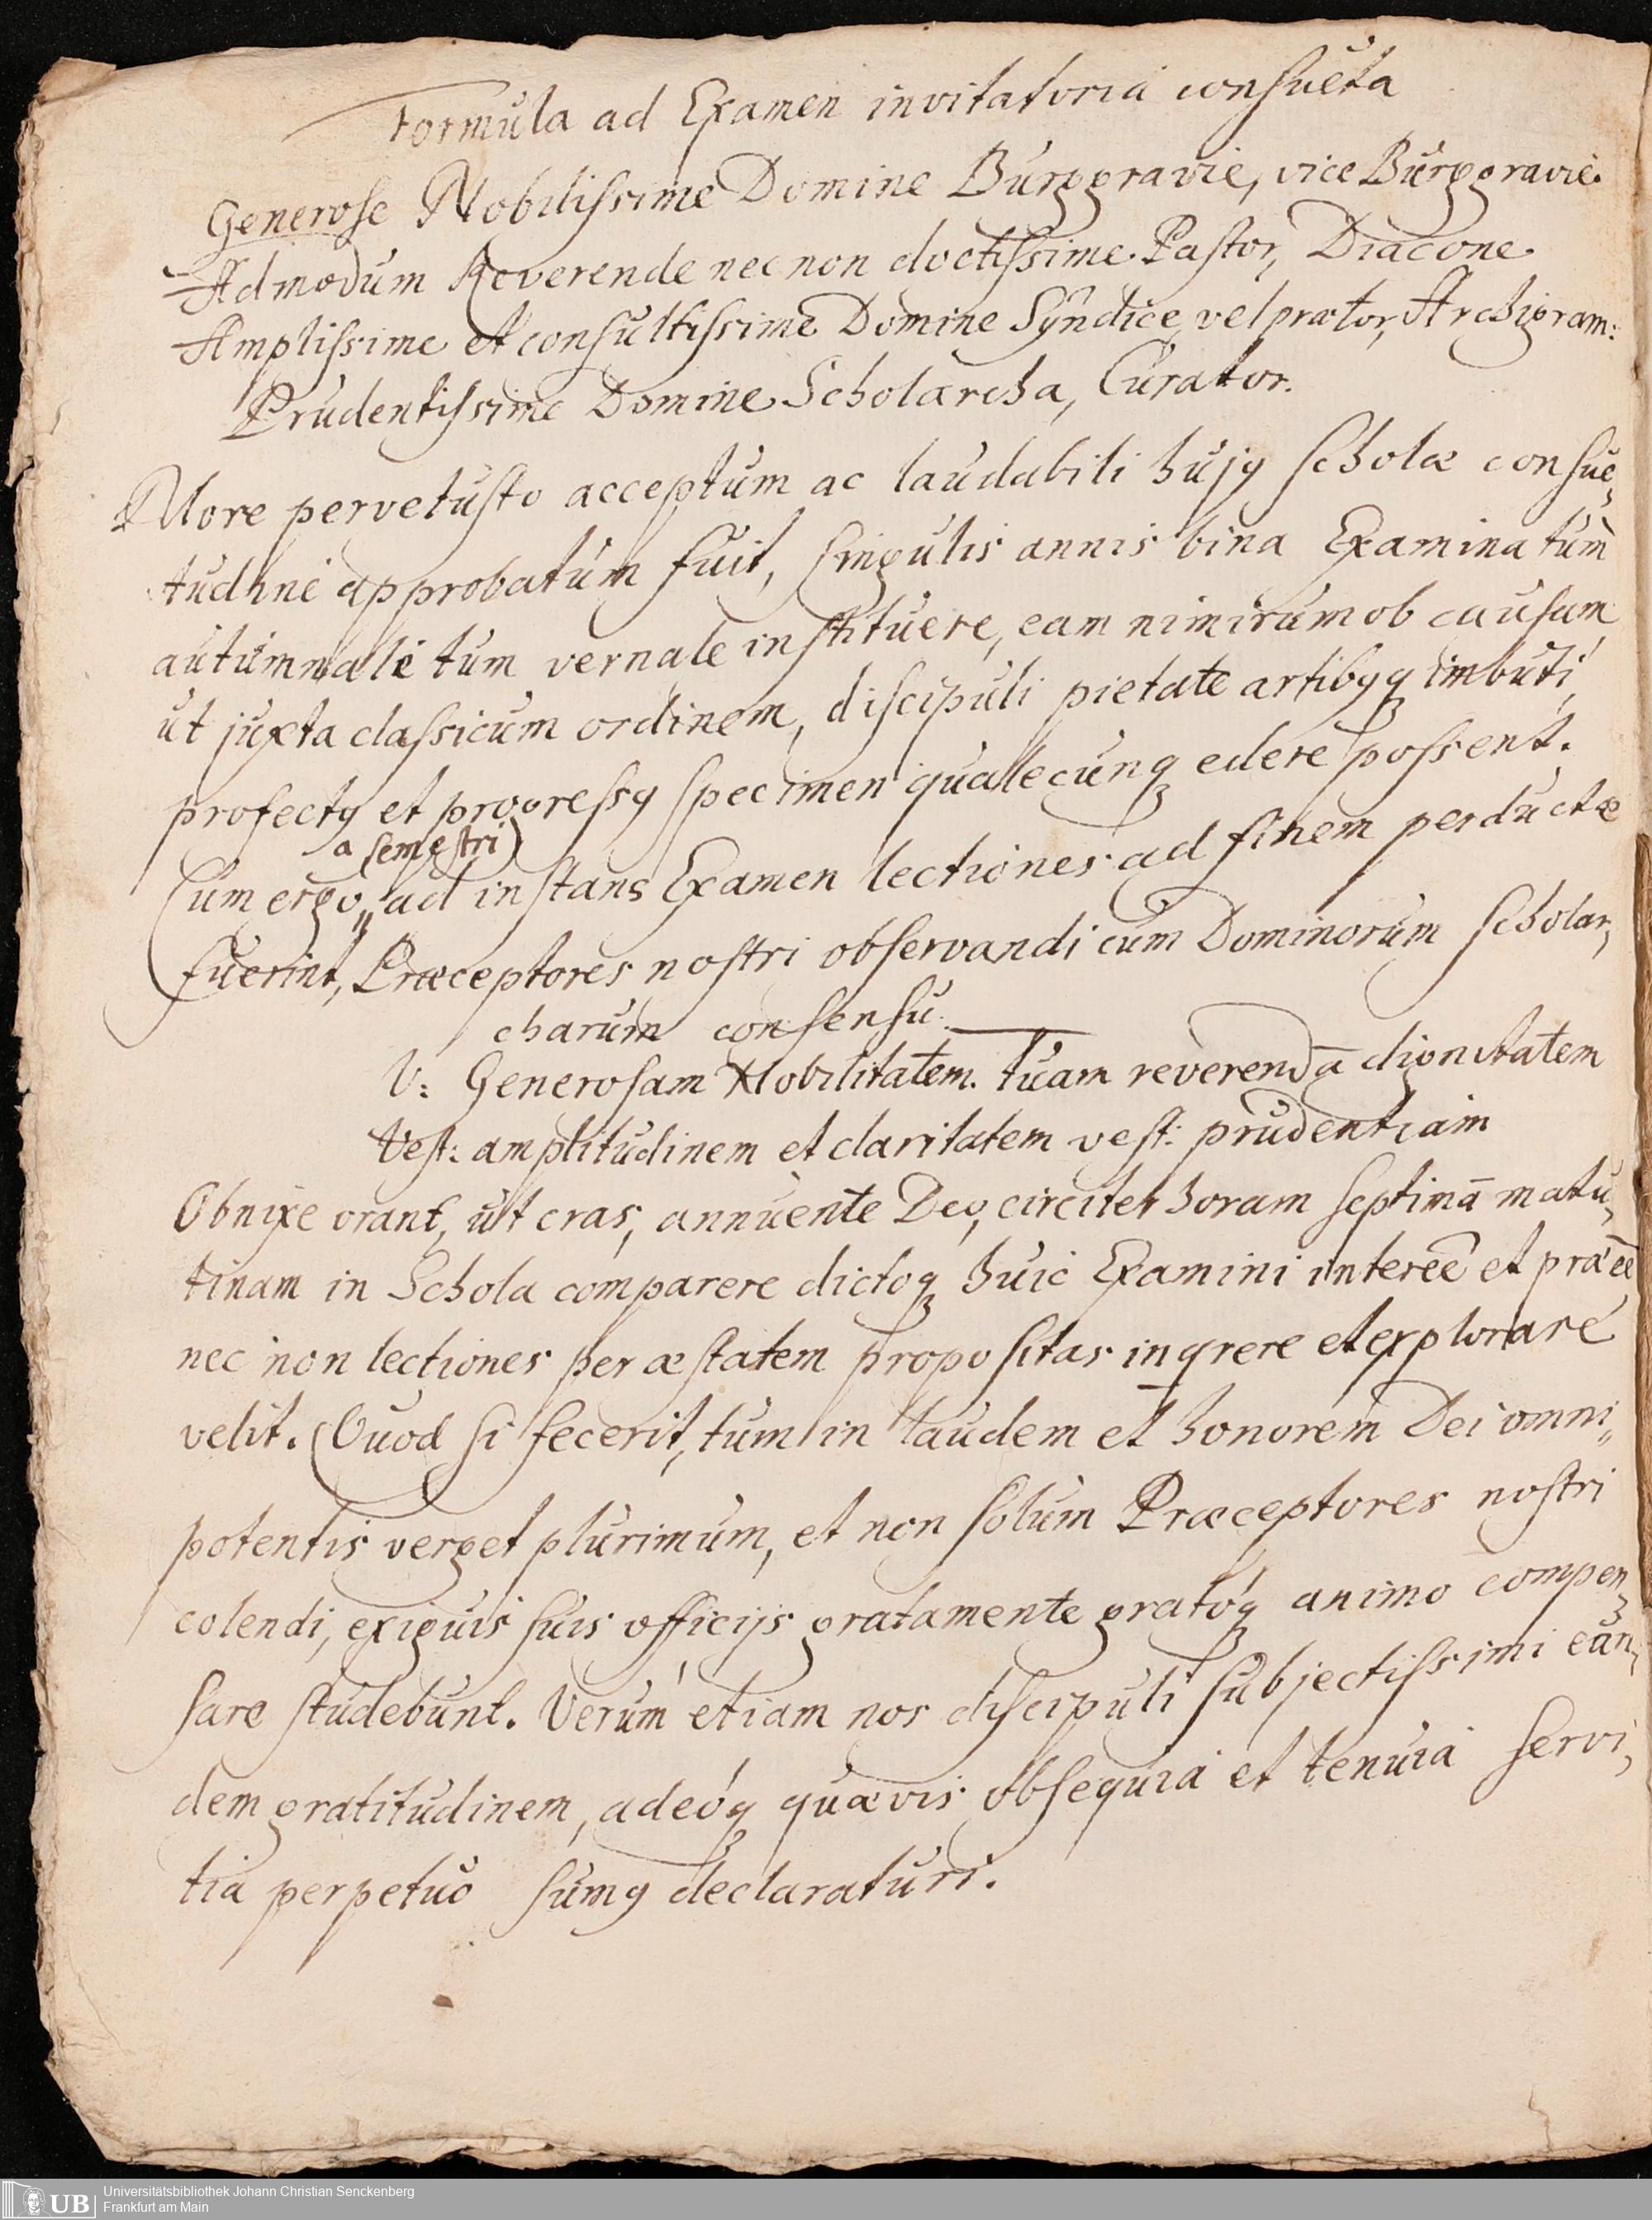 Formula ad Examen invitatoria consueta
Generose Nobilissime Domine Burggravie, vice Burggravie
Admodum Reverende nec non doctissime Pastor, Diacone
Amplissime et consultissime Domine Syndice, vel prætor, Archigram:
Prudentissime Domine Scholarcha, Curator.
More pervetusto acceptum ac laudabili hujq scholæ consue,
tudine approbatum fuit, singulis annis bina Examina tum
autumnale tum vernale instituere, eam nimirum ob causam
ut juxta classicum ordinem, discipuli pietate artibqq imbuti,
profectq et progressq specimen qualecunq edere possent.
a semestri)
Cum ergo,, ad instans Examen lectiones ad finem perductæ
fuerint, Præceptores nostri observandi cum Dominorum Scholar,
charum consensu.
V: Generosam Nobilitatem. tuam reverendā dignitatem
Vest: amplitudinem et claritatem vest: prudentiam
Obnixe orant, ut cras, annuente Deo, circiter horam septimā matu,
tinam in Schola comparere dictoq huic Examiniintereē et præeē
nec non lectiones per æstatem propositas inqrere et explorare
velit. Quod si fecerit, tum in laudem et honorem Dei omni,,
potentis verget plurimum, et non solum Præceptores nostri
colendi, exiguis suis officijs gratamente gratóq animo compen,
sare studebunt. Verúm etiam nos discipuli subjectissimi eun,
dem gratitudinem, adeóq quævis obsequia et tenuia servi,
tia perpetuò sumq declaraturi.
UB
Universitätsbibliothek Johann Christian Senckenberg
Frankfurt am Main